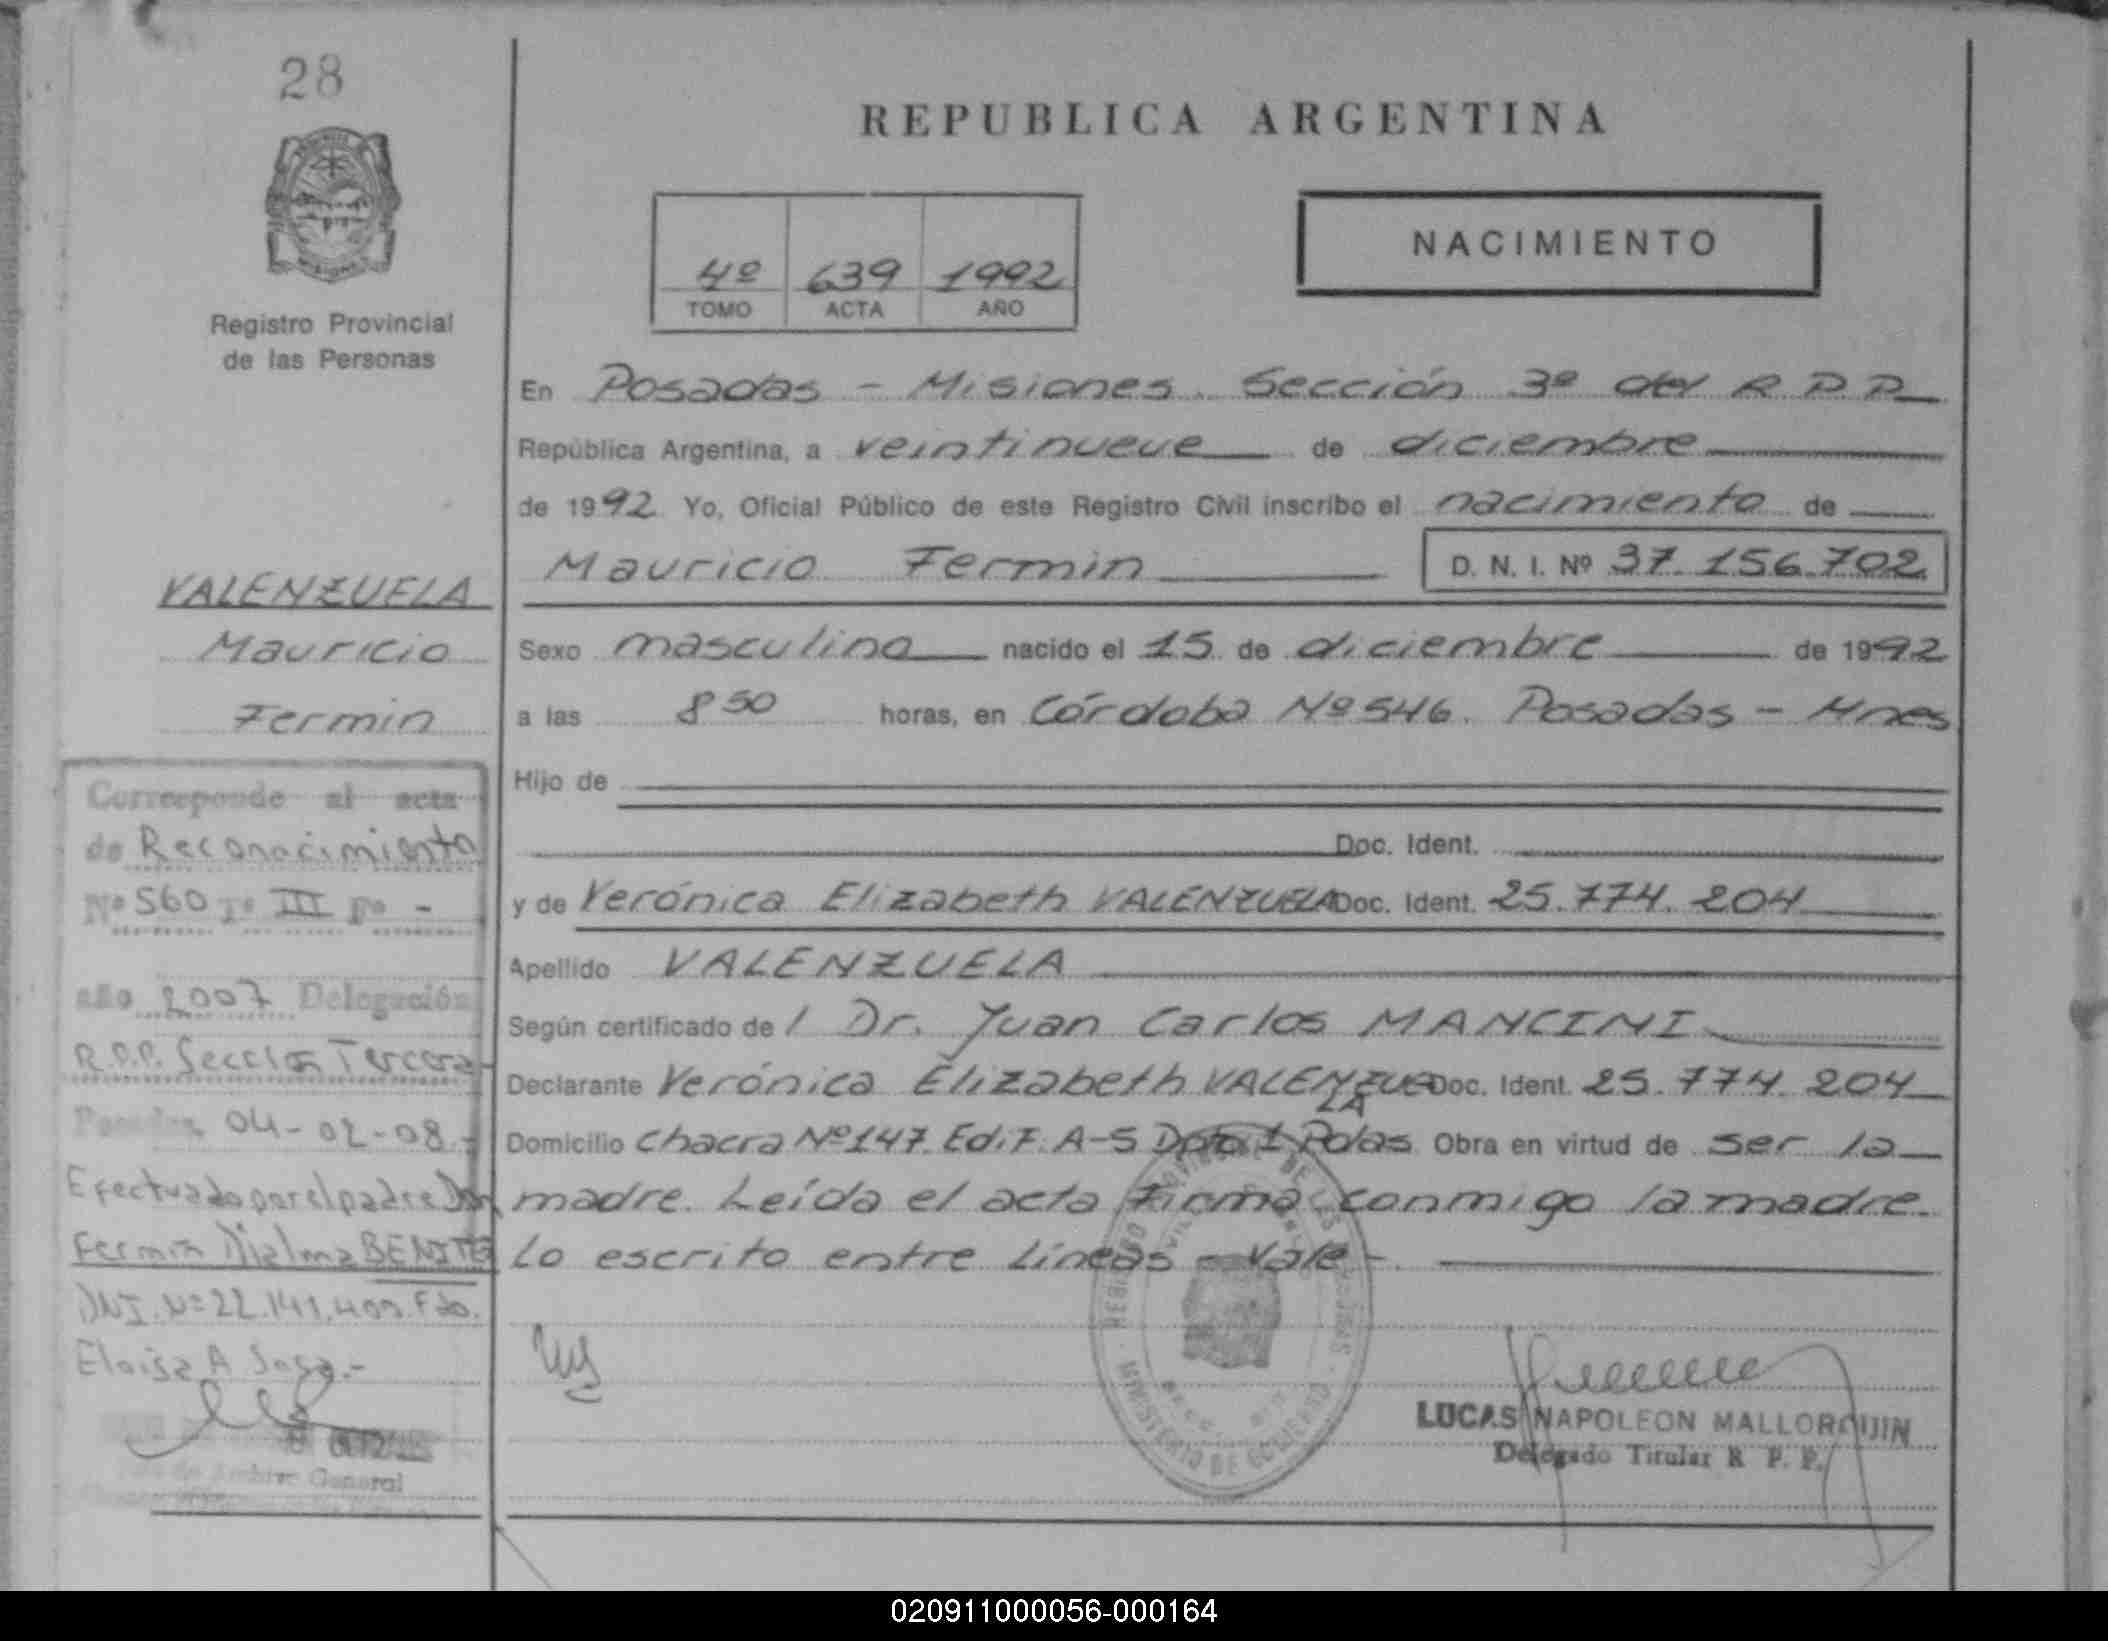 28
REPUBLICA ARGENTINA
NACIMIENTO
4º 639 1992
TOMO ACTA AÑO
Registro Provincial
de las Personas
En Posadas - Misiones. Sección 3º del R.P.P.
República Argentina, a veintinueve de diciembre
de 1992 Yo, Oficial Público de este Registro Civil inscribo el nacimiento de
Mauricio Fermin D. N. I. Nº 37.156.702
VALENZUELA
Mauricio
Fermin
Sexo masculino nacido el 15 de diciembre de 1992
a las 8 50 horas, en Córdoba Nº 546. Posadas - Mnes
Hijo de
Doc. Ident.
y de Verónica Elizabeth VALENZUELA Doc. Ident. 25.774.204
Apellido VALENZUELA
Según certificado de / Dr. Juan Carlos MANCINI
Declarante Verónica Elizabeth VALENZUELA Doc. Ident. 25.774.204
Domicilio Chacra Nº 147. Edif. A-5 Dpto 1 Pdas. Obra en virtud de ser la
madre. Leída el acta firma conmigo la madre.
Lo escrito entre líneas - Vale -.
Corresponde al acta
de Reconocimiento
Nº 560 Tº III Fº -
año 2007 Delegación
R.P.P. Sección Tercera
Posadas, 04-02-08.-
Efectuado por el padre Don
Fermin Dialma BENITEZ
DNI. Nº 22.141. Fdo.
Eloisa A Sosa.-
Archivo General
REGISTRO PROVINCIAL DE LAS PERSONAS
MINISTERIO DE GOBIERNO
LUCAS NAPOLEON MALLORQUIN
Delegado Titular R. P. P.
020911000056-000164